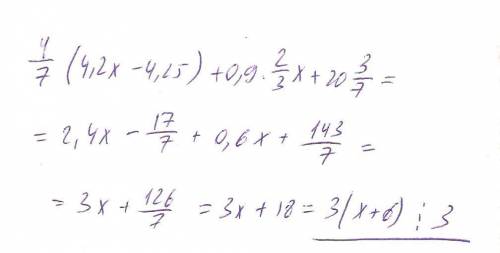 4/7 (4,2x - 4,25) + 0,9 · 2/3 x + 20 3/7 =
= 2,4x - 17/7 + 0,6x + 143/7 =
= 3x + 126/7 = 3x + 18 = 3(x+6) ⋮ 3